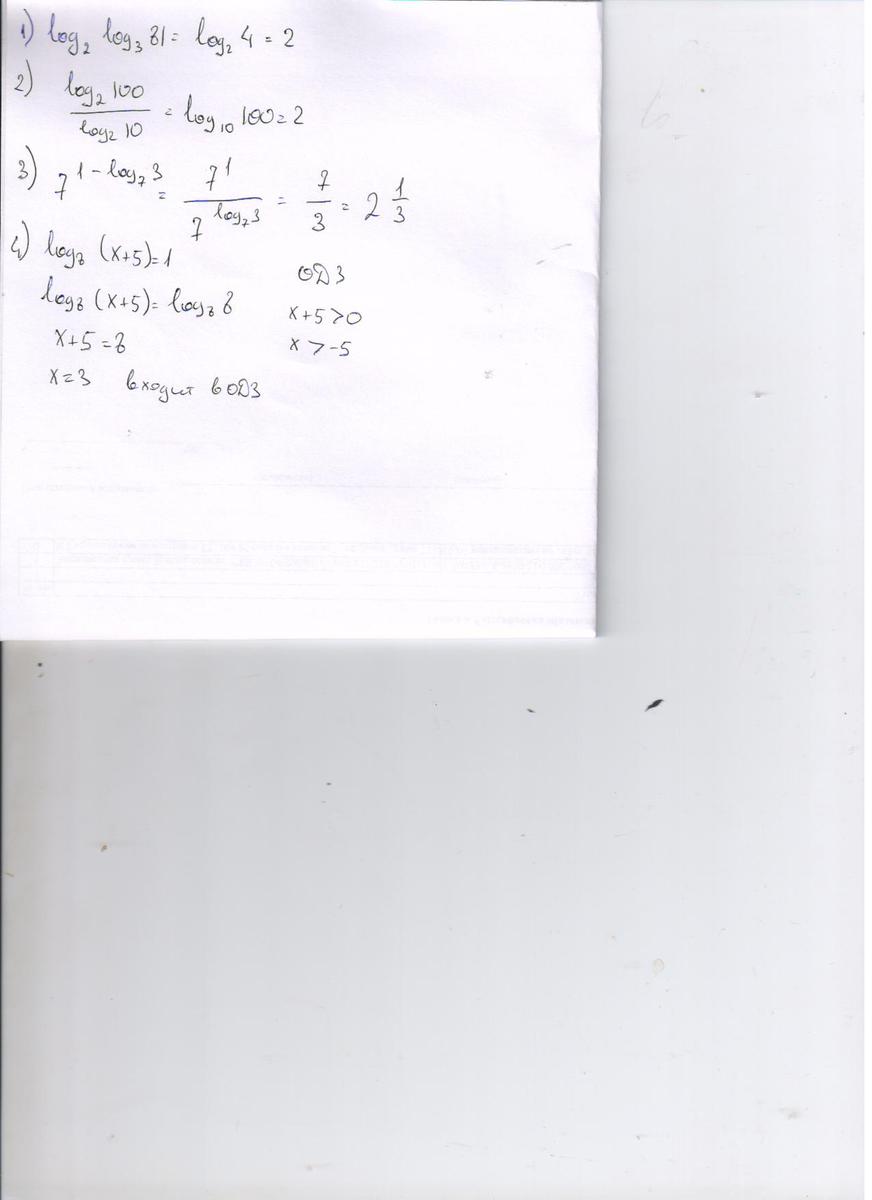 1) log₂ log₃ 81 = log₂ 4 = 2
2) log₂ 100 / log₂ 10 = log₁₀ 100 = 2
3) 7^(1 - log₇ 3) = 7^1 / 7^(log₇ 3) = 7/3 = 2 1/3
4) log₈ (x+5) = 1
ОДЗ
log₈ (x+5) = log₈ 8
x+5 >0
x+5 = 8
x > -5
x = 3 входит в ОДЗ